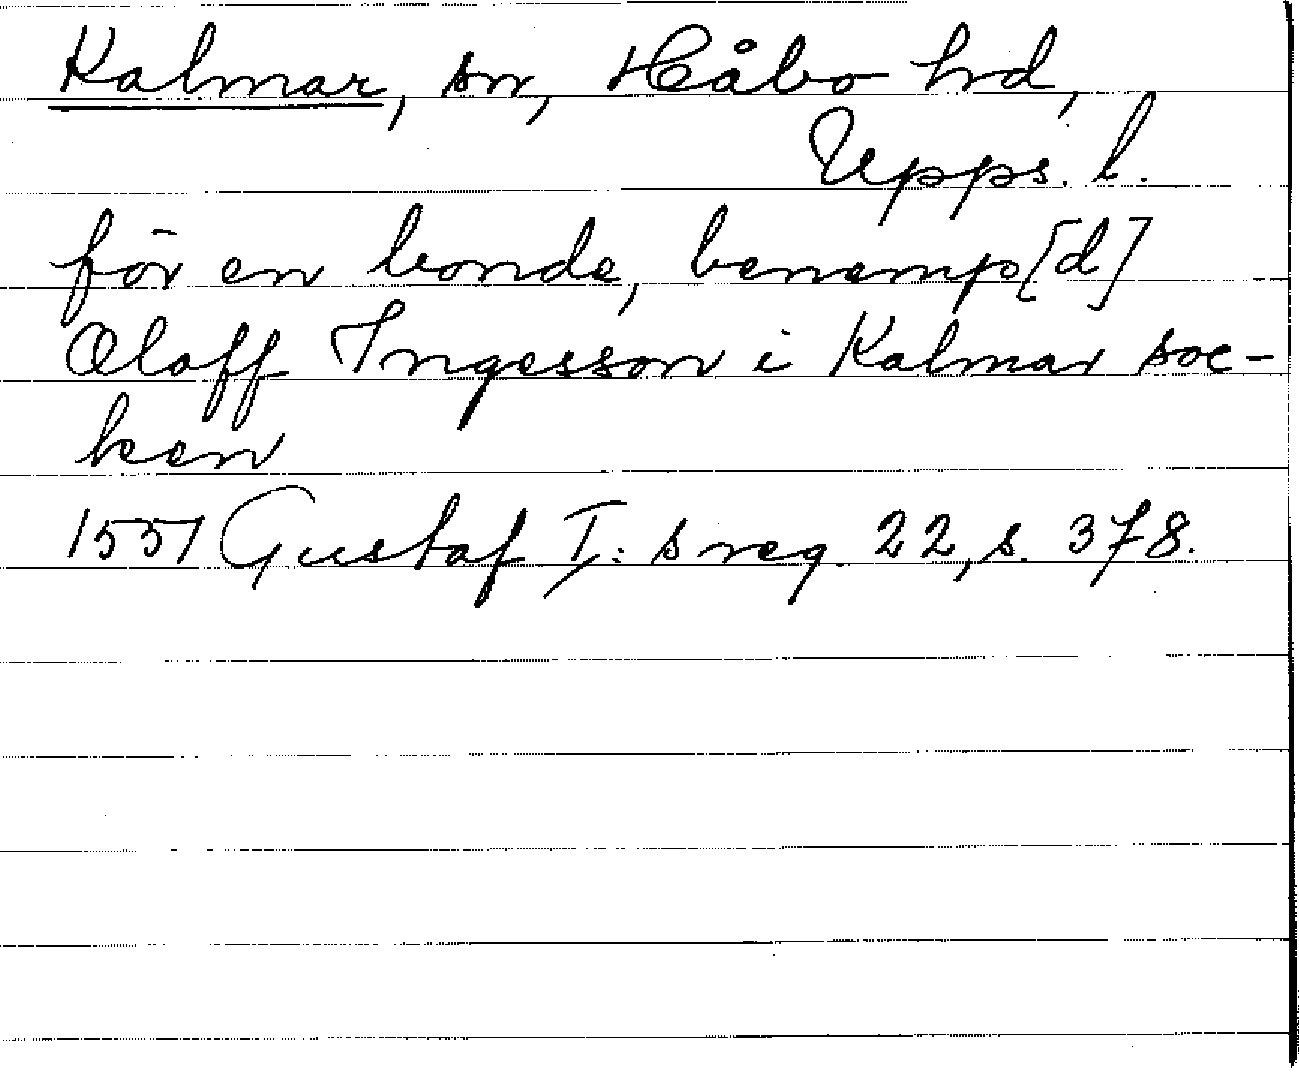 Kalmar, sn, Håbo hd,
Upps. l.
för en bonde, benemp[d]
Oloff Ingesson i Kalmar soc-
ken
1551 Gustaf I: s reg. 22, s. 378.